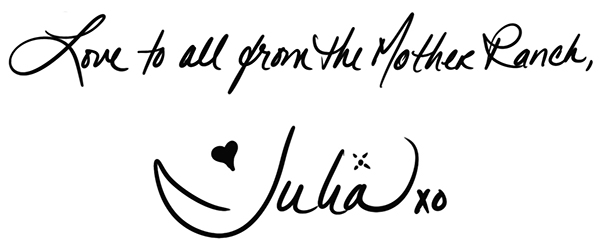 Love to all from the Mother Ranch,
Julia xo